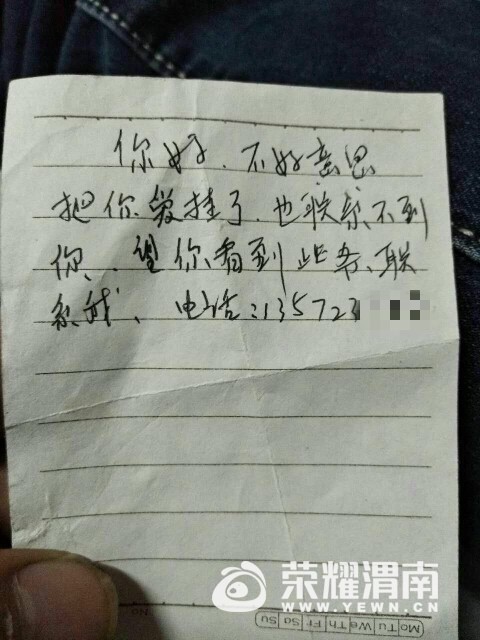 你好、不好意思
把你 挂了.也联系不到
你、望你看到此条、联
系我、电话:135723
No
Mo Tu We Th Fr Sa Su
荣耀渭南
WWW.YEWN.CN